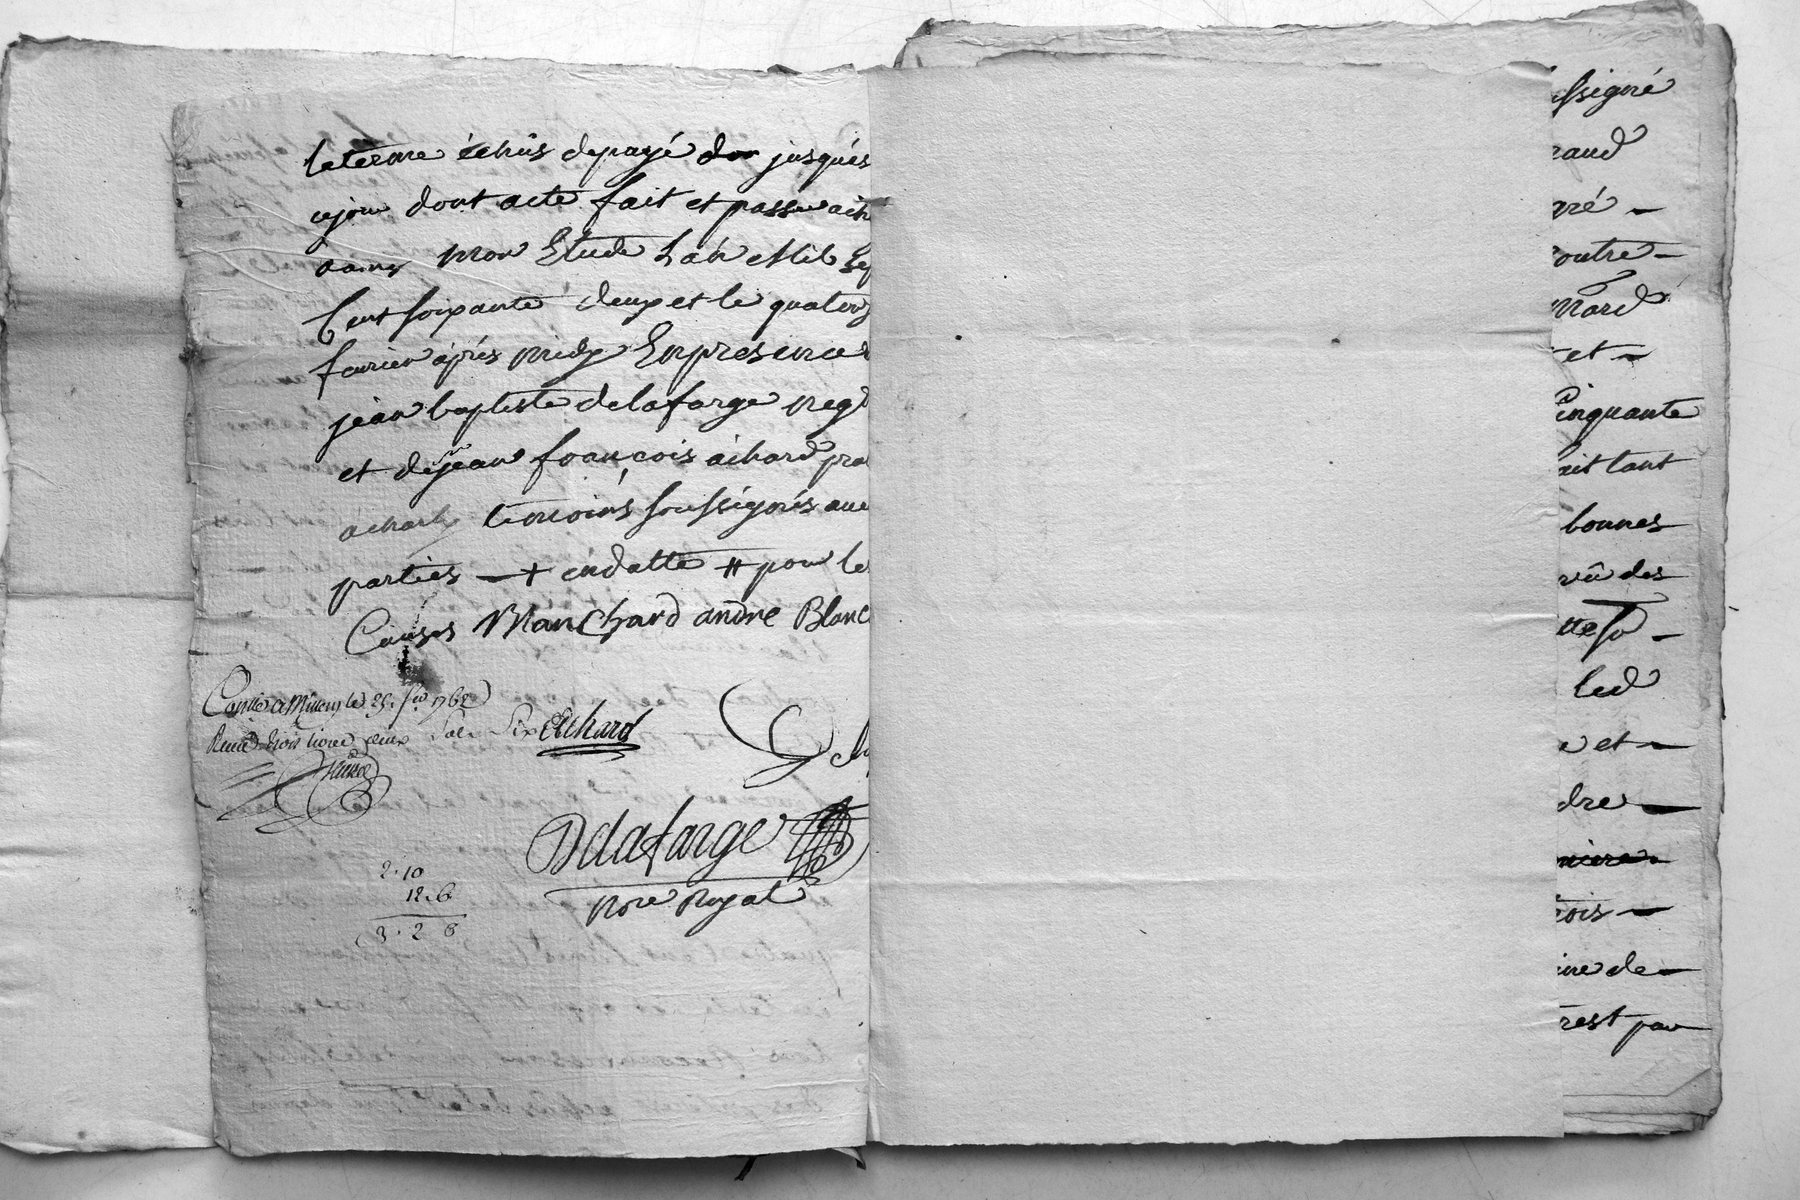 le terme échus de payé don jusqués
cejour dont acte fait et passé
dans mon Etude Lah Mil Sep
Cent soixante deux et le quatorz
fevrier áprés midy En presences
jean baptiste delafarge neg
et de jean françois achard pra
temoins soussignés ave
parties —+ endatte # pour les
Causes Manchard andre Blanc
le 25. fer 1762
Reçu trois livres deux sols six Achard
Delafarge
Nore Royal
2.10
12.6
3.2 6
ssigné
raud
gré —
contre —
nard
et —
Cinquante
ait tant
bonnes
vû des
led
e et —
dre —
rois —
ine de —
rest par